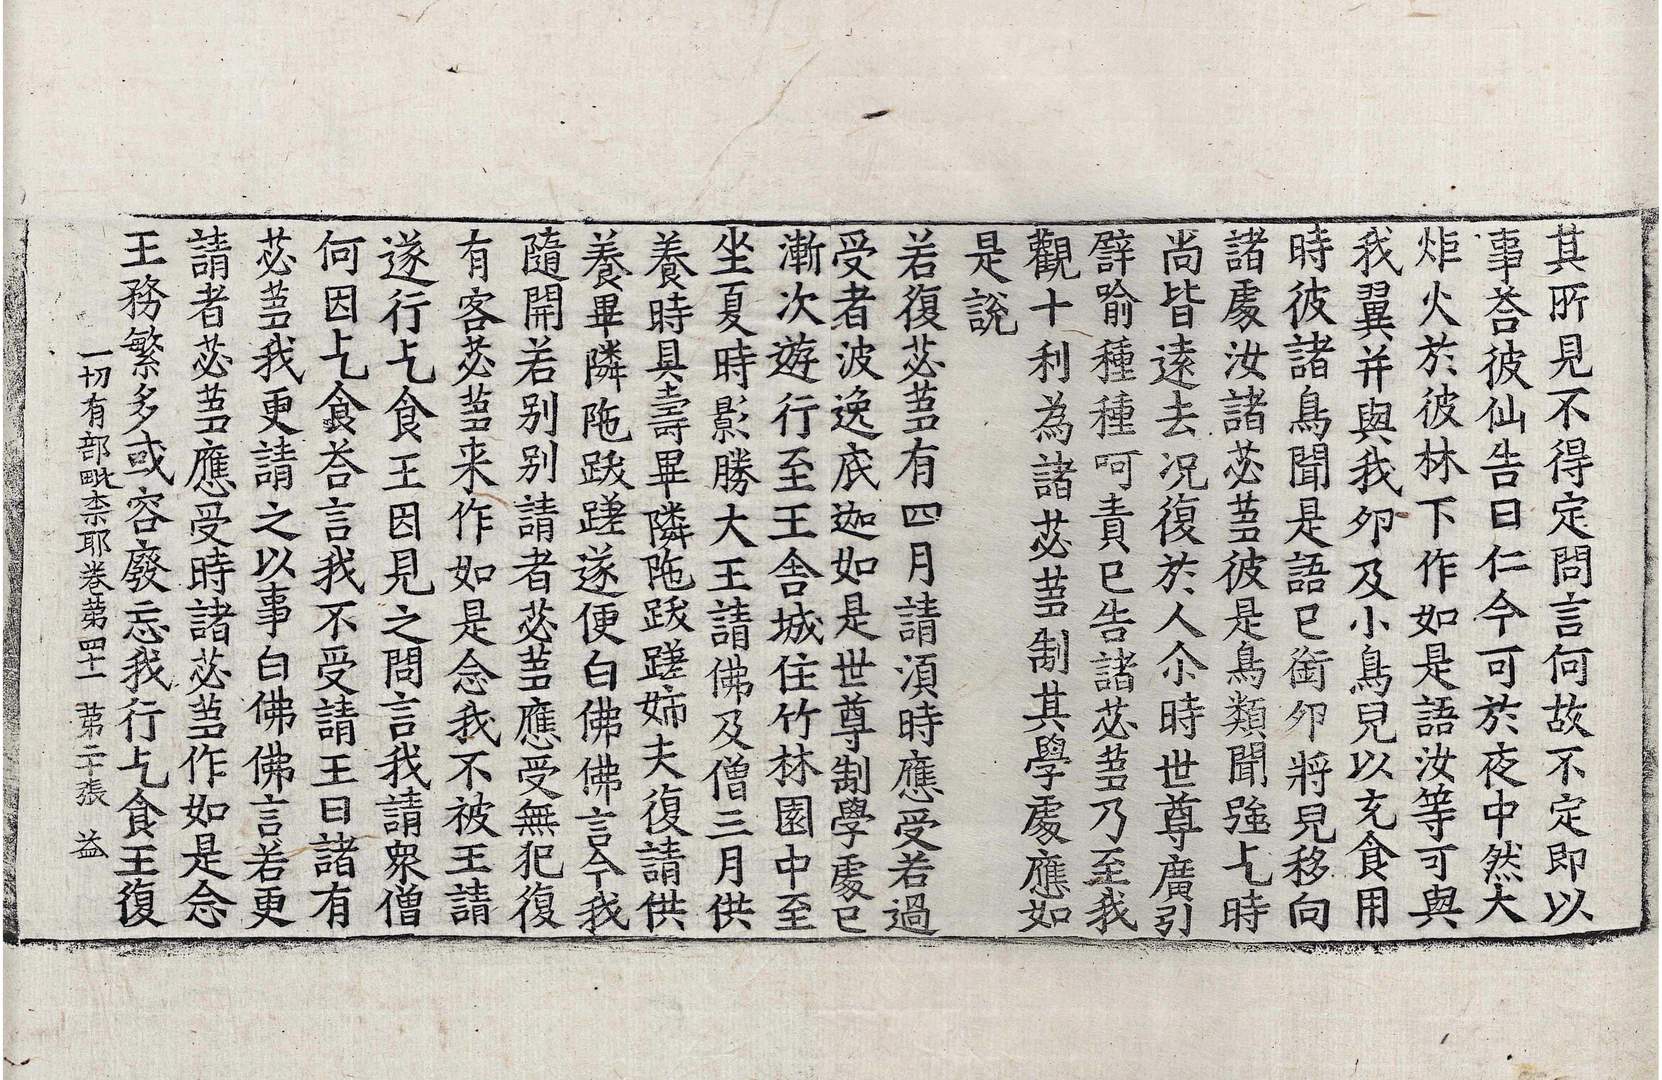 其所見不得定問言何故不定即以
事荅彼仙告曰仁今可於夜中然大
炬火於彼林下作如是語汝等可與
我翼并與我夘及小鳥兒以充食用
時彼諸鳥聞是語已銜夘將兒移向
諸處汝諸苾芻彼是鳥類聞強乞時
尚皆遠去况復於人尒時世尊廣引
譬喻種種呵責已告諸苾芻乃至我
觀十利為諸苾芻制其學處應如
是說
若復苾芻有四月請湏時應受若過
受者波逸底迦如是世尊制學處已
漸次遊行至王舍城住竹林園中至
坐夏時影勝大王請佛及僧三月供
養時具壽畢隣陁跋蹉姉夫復請供
養畢隣陁跋蹉遂便白佛佛言今我
隨開若別別請者苾芻應受無犯復
有客苾芻来作如是念我不被王請
遂行乞食王因見之問言我請衆僧
何因乞食荅言我不受請王曰諸有
苾芻我更請之以事白佛佛言若更
請者苾芻應受時諸苾芻作如是念
王務繁多或容廢忘我行乞食王復
一切有部毗柰耶卷苐四十一 苐二十張 益